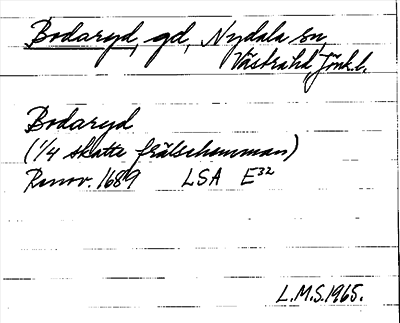 Bodaryd, gd, Nydala sn,
Västra hd, Jönk.l.
Bodaryd
(1/4 skatte frälsehemman)
Renov. 1689 LSA E³²
L.M.S. 1965.